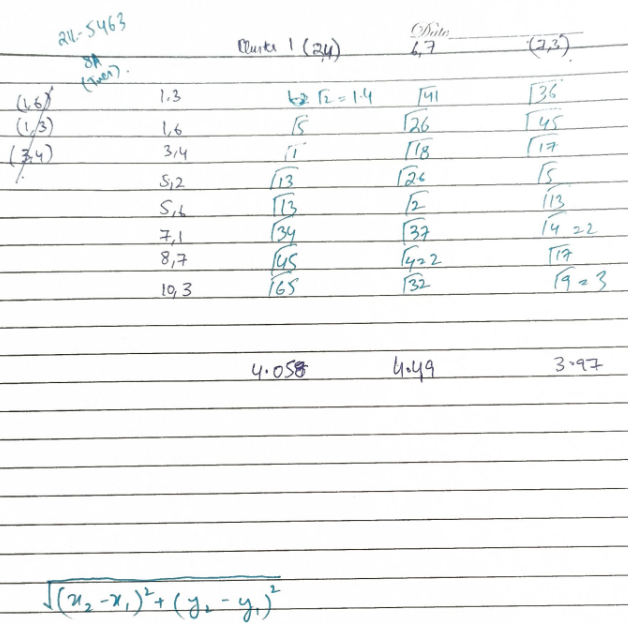 21L-5463
8A
(Tues).
Date
Cluster 1 (2,4) 6,7 (7,3)
(1,6) 1.3 √2 = 1.4 √41 √36
(1,3) 1,6 √5 √26 √45
(3,4) 3,4 √1 √18 √17
5,2 √13 √26 √5
5,6 √13 √2 √13
7,1 √34 √37 √4 = 2
8,7 √45 √4=2 √17
10,3 √65 √32 √9 = 3
4.058 4.49 3.97
√(x₂-x₁)²+(y₂-y₁)²